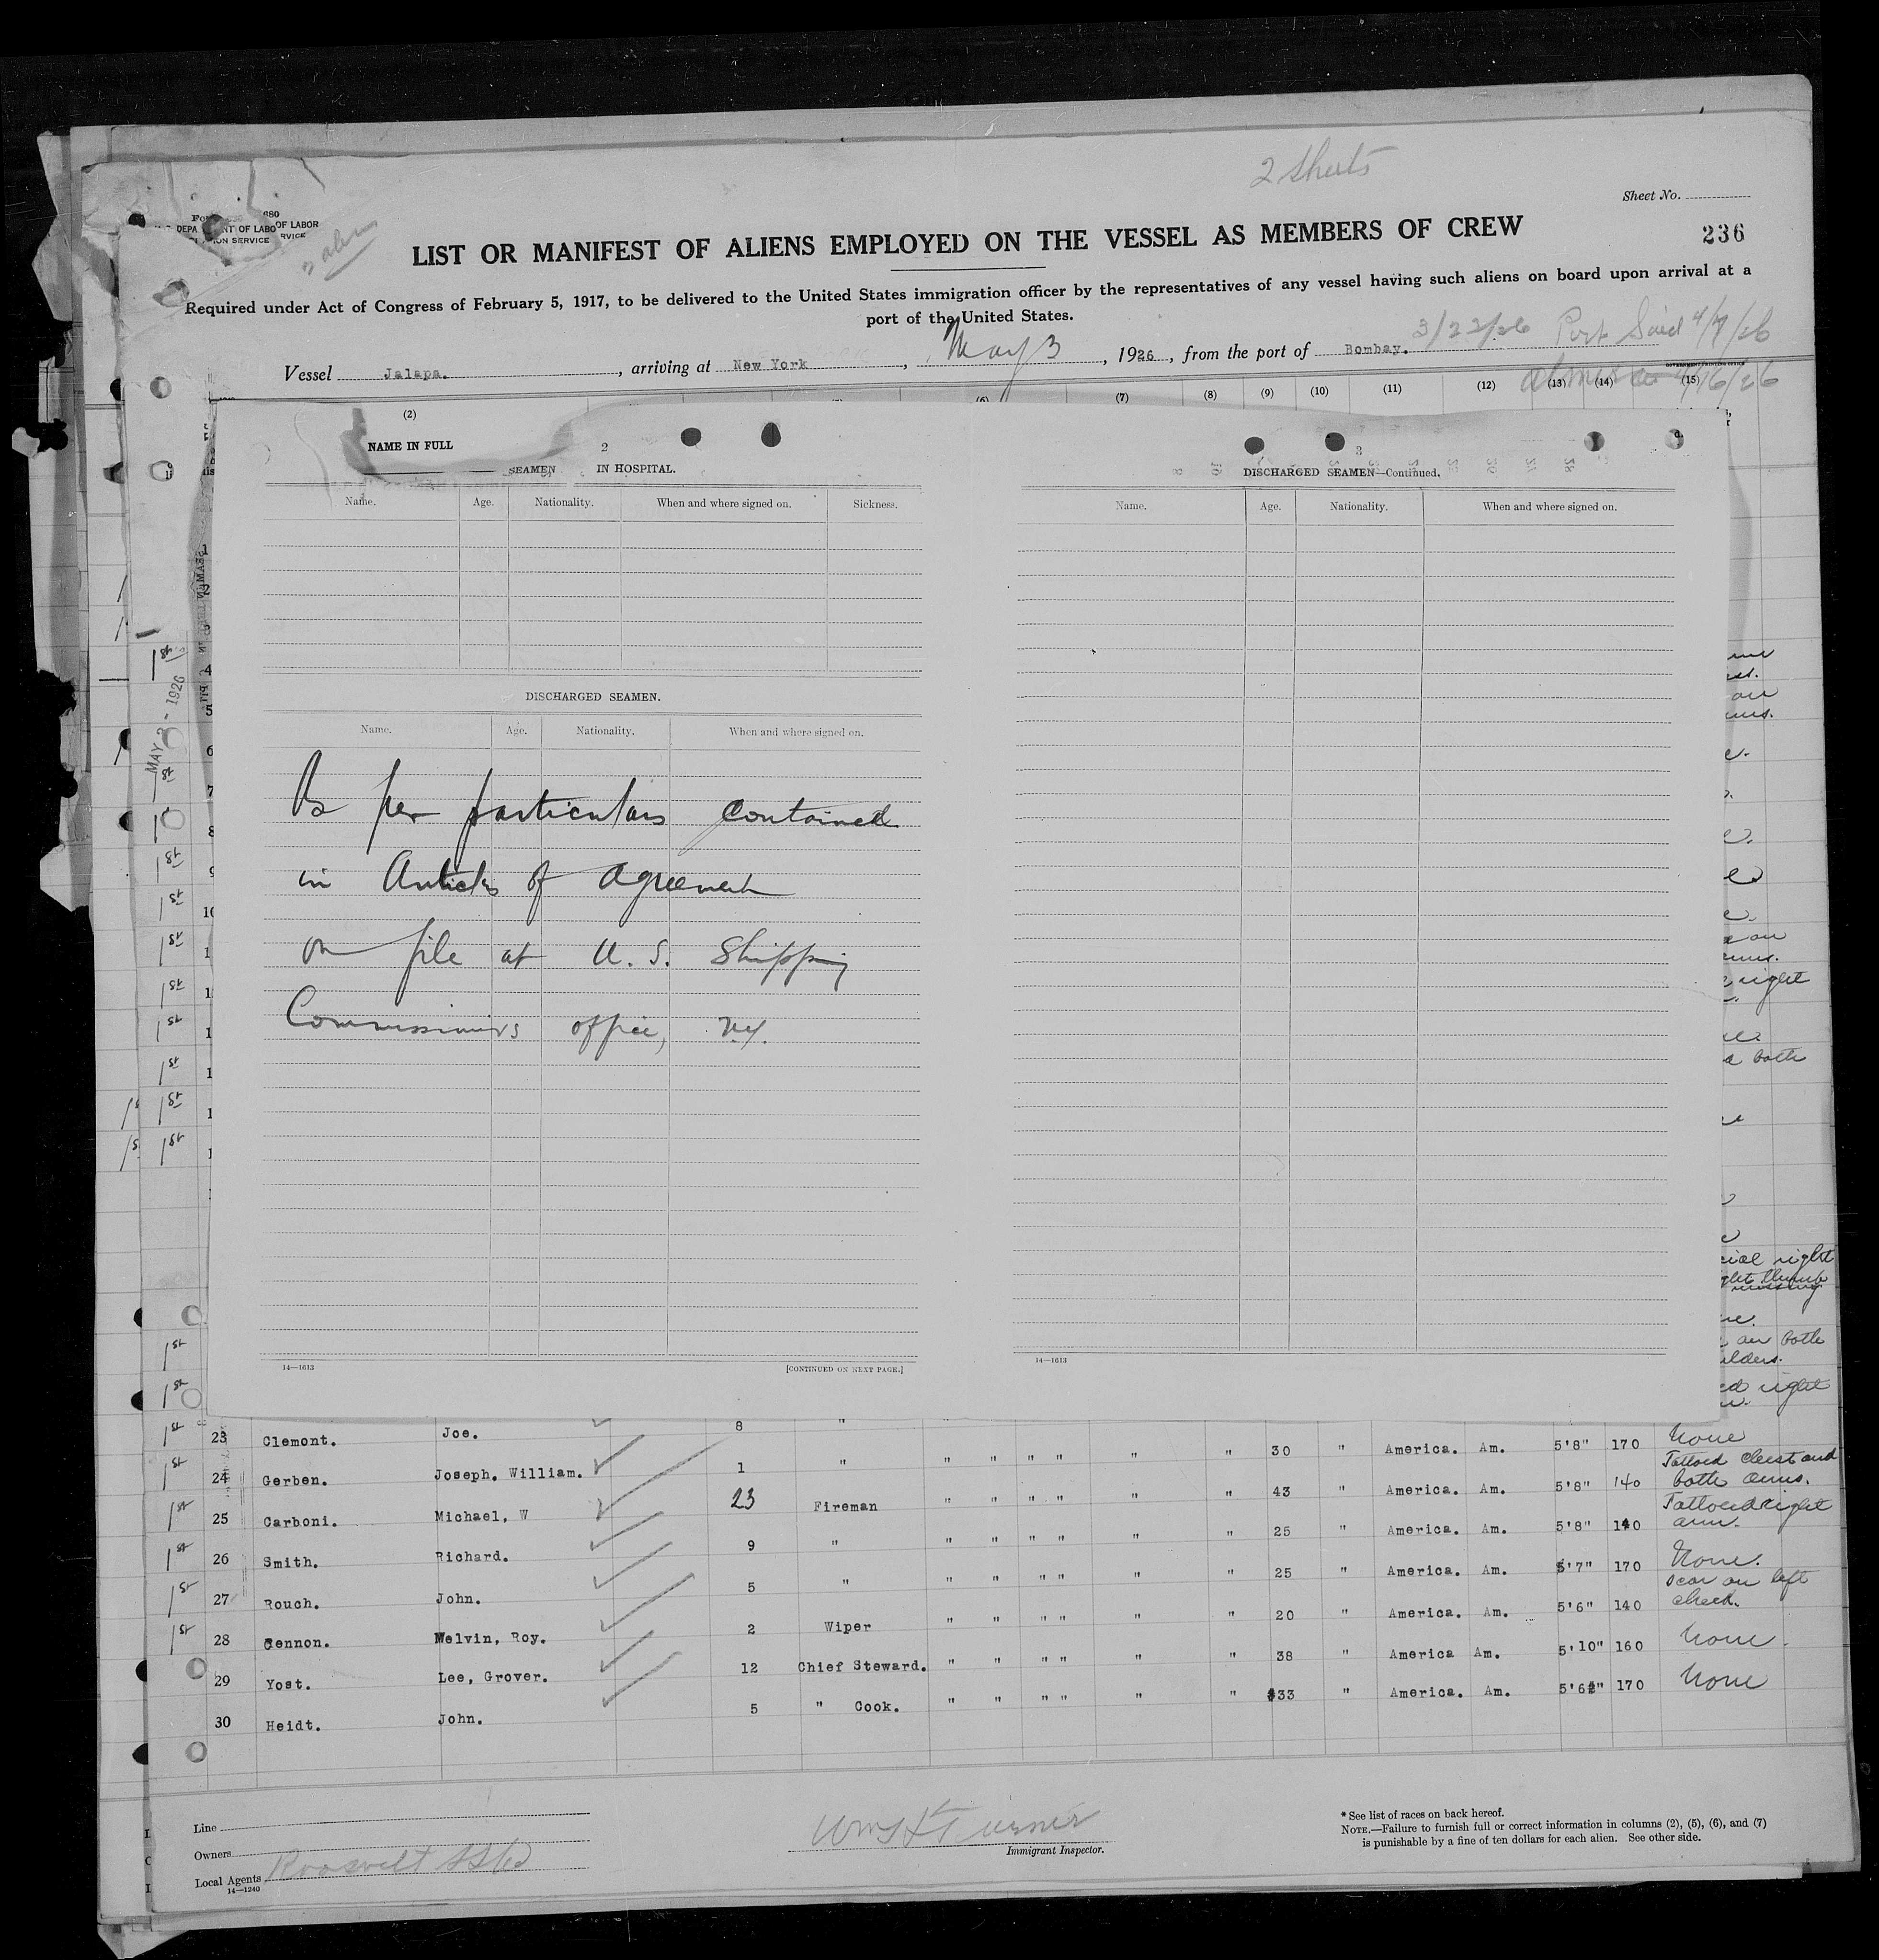 2 Sheets
Sheet No.
236
OF LABOR
LIST OR MANIFEST OF ALIENS EMPLOYED ON THE VESSEL AS MEMBERS OF CREW
Required under Act of Congress of February 5, 1917, to be delivered to the United States immigration officer by the representatives of any vessel having such aliens on board upon arrival at a
port of the United States.
Vessel Jalapa. , arriving at New York , May 3 , 1926 , from the port of Bombay. 3/22/26 Port Said 4/7/26
(6) (7) (8) (9) (10) (11) (12) (13) (14) (15)
(2)
NAME IN FULL
2
SEAMEN IN HOSPITAL.
Name. Age. Nationality. When and where signed on. Sickness.
DISCHARGED SEAMEN.
Name. Age. Nationality. When and where signed on.
As per particulars contained
in Articles of Agreement
on file at U. S. Shipping
Commissioners office, N.Y.
14—1613 [CONTINUED ON NEXT PAGE.]
3
DISCHARGED SEAMEN—Continued.
Name. Age. Nationality. When and where signed on.
14—1613
MAY 3 - 1926
1st 23 Clemont. Joe. 8 " 
" " " " " " 30 " America. Am. 5'8" 170 None
1st 24 Gerben. Joseph. William. 1 "
" " " " " " 43 " America. Am. 5'8" 140 Tattoed chest and both arms.
1st 25 Carboni. Michael, W 23 Fireman
" " " " " " 25 " America. Am. 5'8" 140 Tattoed right arm.
1st 26 Smith. Richard. 9 "
" " " " " " 25 " America. Am. 5'7" 170 None.
1st 27 Rouch. John. 5 "
" " " " " " 20 " America. Am. 5'6" 140 scar on left cheek.
1st 28 Cennon. Melvin, Roy. 2 Wiper
" " " " " " 38 " America Am. 5'10" 160 None.
29 Yost. Lee, Grover. 12 Chief Steward.
" " " " " " 33 " America. Am. 5'6" 170 None
30 Heidt. John. 5 " Cook.
Line
Owners
Local Agents Roosevelt SS Co
14—1240
Immigrant Inspector.
* See list of races on back hereof.
NOTE.—Failure to furnish full or correct information in columns (2), (5), (6), and (7)
is punishable by a fine of ten dollars for each alien. See other side.